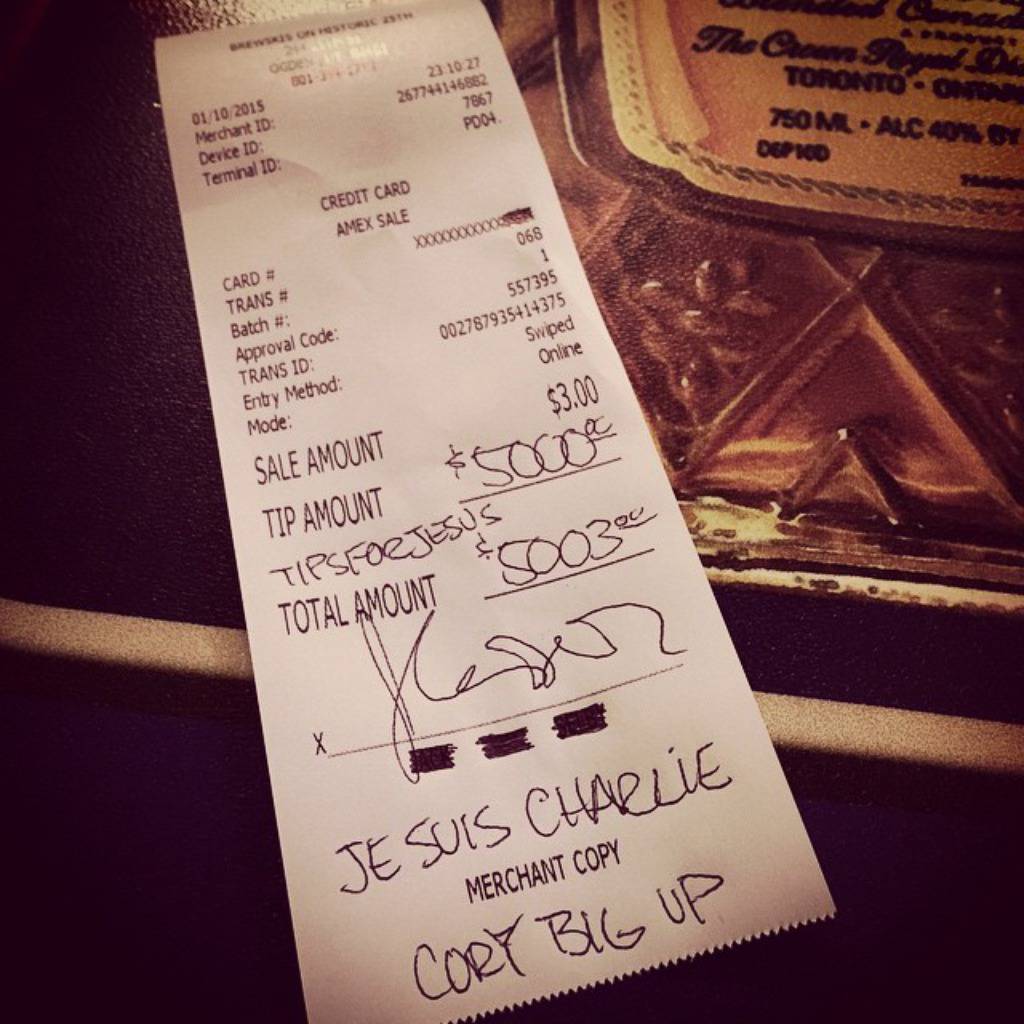 BREWSKIS ON HISTORIC 25TH
OGDEN
01/10/2015 23:10:27
Merchant ID: 267744146882
Device ID: 7867
Terminal ID: PD04.
CREDIT CARD
AMEX SALE
CARD # XXXXXXXXXXX
TRANS # 068
Batch #: 1
Approval Code: 557395
TRANS ID: 002787935414375
Entry Method: Swiped
Mode: Online
SALE AMOUNT $3.00
TIP AMOUNT $5000.00
TIPSFORJESUS
TOTAL AMOUNT $5003.00
X
JE SUIS CHARLIE
MERCHANT COPY
CORY BIG UP
A PRODUCT
The Crown Royal
TORONTO · ONTARIO
750 ML · ALC 40% BY